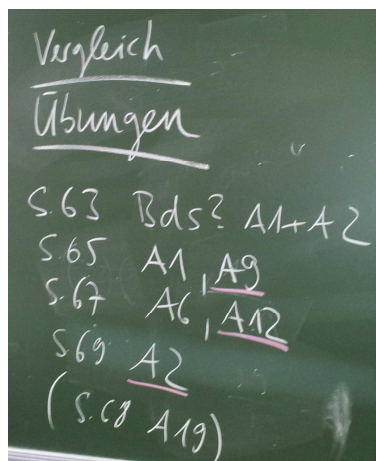 Vergleich
Übungen
S.63 Bds? A1+A2
S.65 A1, A9
S.67 A6, A12
S69 A2
(S.68 A19)